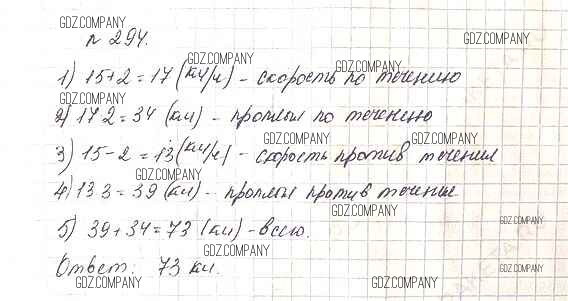 GDZ.COMPANY
№ 294.
GDZ.COMPANY
GDZ.COMPANY
GDZ.COMPANY
1) 15+2=17 (км/ч) - скорость по течению
GDZ.COMPANY
2) 17 2=34 (км) - проплыл по течению
GDZ.COMPANY
GDZ.COMPANY
3) 15-2=13 (км/ч) - скорость против течения
GDZ.COMPANY
4) 13 3=39 (км) - проплыл против течения
GDZ.COMPANY
GDZ.COMPANY
5) 39+34=73 (км) - всего.
GDZ.COMPANY
Ответ: 73 км.
GDZ.COMPANY
GDZ.COMPANY
GDZ.COMPANY